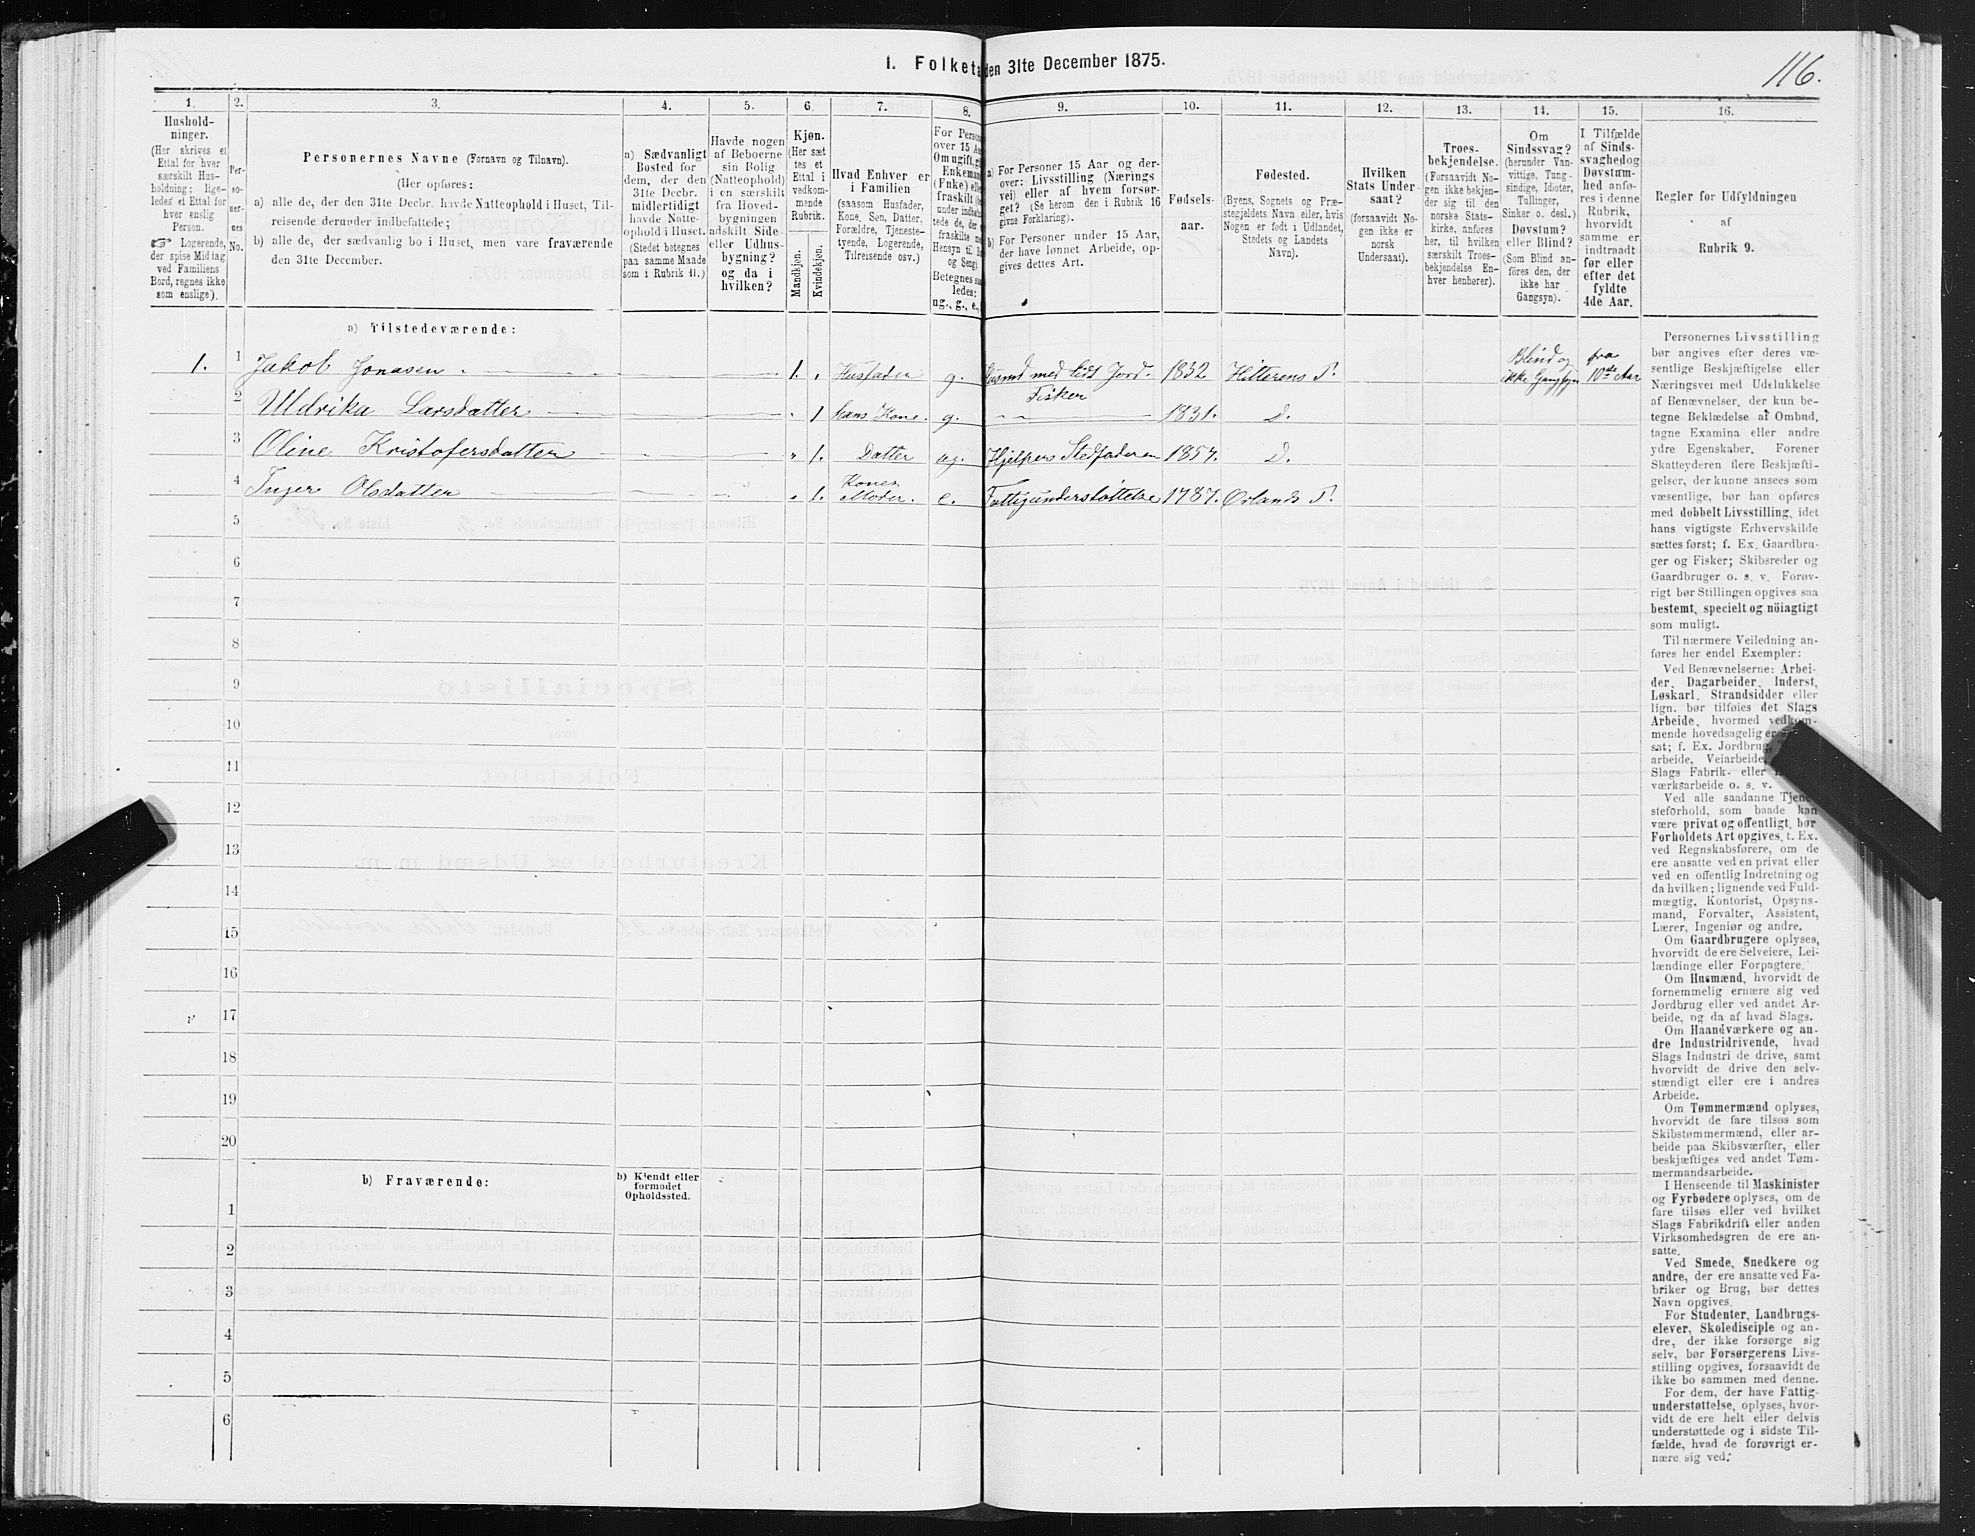 116.
1. Folketæ den 31te December 1875.
1. 2. 3. 4. 5. 6. 7. 8. 9. 10. 11. 12. 13. 14. 15. 16.
Hushold-
ninger.
(Her skrives et
Ettal for hver
særskilt Hus-
holdning; lige-
ledes et Ettal for
hver enslig
Person.
☞ Logerende,
der spise Middag
ved Familiens
Bord, regnes ikke
som enslige).
Per-
so-
ner-
nes
No.
Personernes Navne (Fornavn og Tilnavn).
(Her opføres:
a) alle de, der den 31te Decbr. havde Natteophold i Huset, Til-
reisende derunder indbefattede;
b) alle de, der sædvanlig bo i Huset, men vare fraværende
den 31te December.
a) Sædvanligt
Bosted for
dem, der den
31te Decbr.
midlertidigt
havde Natte-
ophold i Huset.
(Stedet betegnes
paa samme Maade
som i Rubrik 11.)
Havde nogen
af Beboerne
sin Bolig
(Natteophold)
i en særskilt
fra Hoved-
bygningen
adskilt Side-
eller Udhus-
bygning?
og da i
hvilken?
Kjøn.
(Her sæt
tes et
Ettal i
vedkom-
mende
Rubrik.
Mandkjøn.
Kvindekjøn.
Hvad Enhver er
i Familien
(saasom Husfader,
Kone, Søn, Datter,
Forældre, Tjeneste-
tyende, Logerende,
Tilreisende osv.)
For Person
over 15 Aa
Om ugift, gi
Enkeman
(Enke) elle
fraskilt (
under indbef
tede de, der e
fraskilte m
Hensyn til Bo
og Seng).
Betegnes sa
ledes:
ug., g., e.,
a) For Personer 15 Aar og der-
over: Livsstilling (Nærings
vei) eller af hvem forsør-
get? (Se herom den i Rubrik 16
givne Forklaring).
b) For Personer under 15 Aar,
der have lønnet Arbeide, op-
gives dettes Art.
Fødsels-
aar.
Fødested.
(Byens, Sognets og Præ-
stegjeldets Navn eller, hvis
Nogen er født i Udlandet,
Stedets og Landets
Navn).
Hvilken
Stats Under-
saat?
(forsaavidt No-
gen ikke er
norsk
Undersaat).
Troes-
bekjendelse.
(Forsaavidt No-
gen ikke bekjen-
der sig til den
norske Stats-
kirke, anføres
her, til hvilken
særskilt Troes-
bekjendelse En-
hver henhører).
Om
Sindssvag?
(herunder Van-
vittige, Tung-
sindige, Idioter,
Tullinger,
Sinker o. desl.)
Døvstum?
eller Blind?
(Som Blind an-
føres den, der
ikke har
Gangsyn).
I Tilfælde
af Sinds-
svaghed og
Døvstum-
hed anfø-
res i denne
Rubrik,
hvorvidt
samme er
indtraadt
før eller
efter det
fyldte
4de Aar.
Regler for Udfyldningen
af
Rubrik 9.
a) Tilstedeværende:
1. 1 Jakob Jonasen 1. Husfader g. Husmd med lidt Jord. Fisker 1832 Hitterens P. Blind og ikke Gangsyn fra 10de Aar
2 Uldrika Larsdatter 1 hans Kone g. 1831. D.
3 Oline Kristofersdatter 1. Datter ug. Hjelper Stedfaderen 1857. D.
4 Inger Olsdatter 1. Konens Moder. e. Fattigunderstøttelse 1787. Ørlands P.
5
6
7
8
9
10
11
12
13
14
15
16
17
18
19
20
b) Fraværende:
b) Kjendt eller
formodet
Opholdssted.
1
2
3
4
5
6
Personernes Livsstilling
bør angives efter deres væ-
sentlige Beskjæftigelse eller
Næringsvei med Udelukkelse
af Benævnelser, der kun be-
tegne Beklædelse af Ombud,
tagne Examina eller andre
ydre Egenskaber. Forener
Skatteyderen flere Beskjæfti-
gelser, der kunne ansees som
væsentlige, bør han opføres
med dobbelt Livsstilling, idet
hans vigtigste Erhvervskilde
sættes først; f. Ex. Gaardbru-
ger og Fisker; Skibsreder og
Gaardbruger o. s. v. Forøv-
rigt bør Stillingen opgives saa
bestemt, specielt og nöiagtigt
som muligt.
Til nærmere Veiledning an-
føres her endel Exempler:
Ved Benævnelserne: Arbei-
der, Dagarbeider, Inderst,
Løskarl, Strandsidder eller
lign. bør tilføies det Slags
Arbeide, hvormed vedkom-
mende hovedsagelig er
sat; f. Ex. Jordbrug,
arbeide, Veiarbeide,
Slags Fabrik- eller
værksarbeide o. s. v.
Ved alle saadanne Tjene-
steforhold, som baade kan
være privat og offentligt, bør
Forholdets Art opgives, t. Ex.
ved Regnskabsførere, om de
ere ansatte ved en privat eller
ved en offentlig Indretning og
da hvilken; lignende ved Fuld-
mægtig, Kontorist, Opsyns-
mand, Forvalter, Assistent,
Lærer, Ingeniør og andre.
Om Gaardbrugere oplyses,
hvorvidt de ere Selveiere, Lei-
lændinge eller Forpagtere.
Om Husmænd, hvorvidt de
fornemmelig ernære sig ved
Jordbrug eller ved andet Ar-
beide, og da af hvad Slags.
Om Haandværkere og an-
dre Industridrivende, hvad
Slags Industri de drive, samt
hvorvidt de drive den selv-
stændigt eller ere i andres
Arbeide.
Om Tømmermænd oplyses,
hvorvidt de fare tilsøs som
Skibstømmermænd, eller ar-
beide paa Skibsværfter, eller
beskjæftiges ved andet Tøm-
mermandsarbeide.
I Henseende til Maskinister
og Fyrbødere oplyses, om de
fare tilsøs eller ved hvilket
Slags Fabrikdrift eller anden
Virksomhedsgren de ere an-
satte.
Ved Smede, Snedkere og
andre, der ere ansatte ved Fa-
briker og Brug, bør dettes
Navn opgives.
For Studenter, Landbrugs-
elever, Skoledisciple og an-
dre, der ikke forsørge sig
selv, bør Forsørgerens Livs-
stilling opgives, forsaavidt de
ikke bo sammen med denne.
For dem, der have Fattig-
understøttelse, oplyses, hvor-
vidt de ere helt eller delvis
understøttede og i sidste Til-
fælde, hvad de forøvrigt er-
nære sig ved.